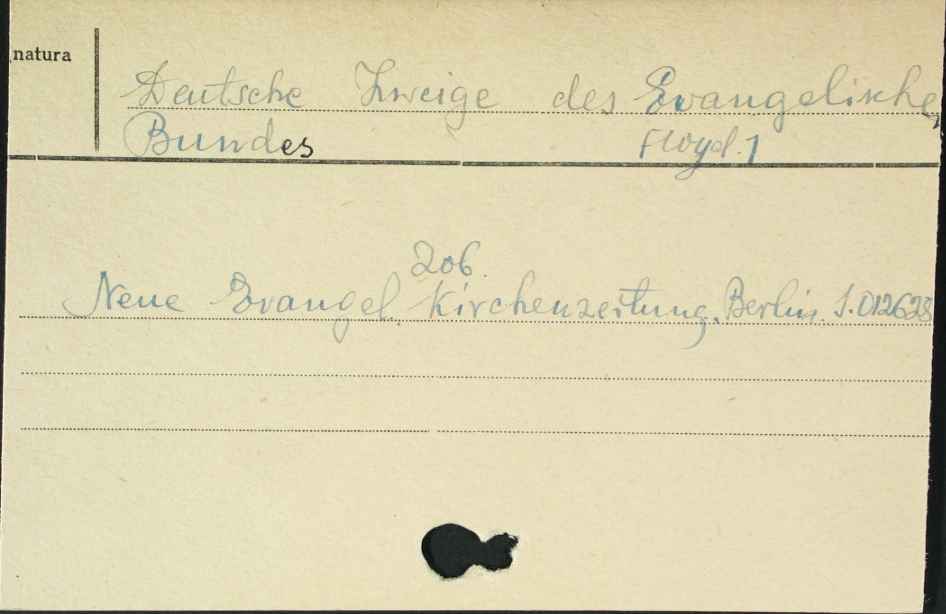 natura
Deutsche Zweige des Evangelische,
Bundes
206.
Neue Evangel. Kirchenzeitung. Berlin. S.012628